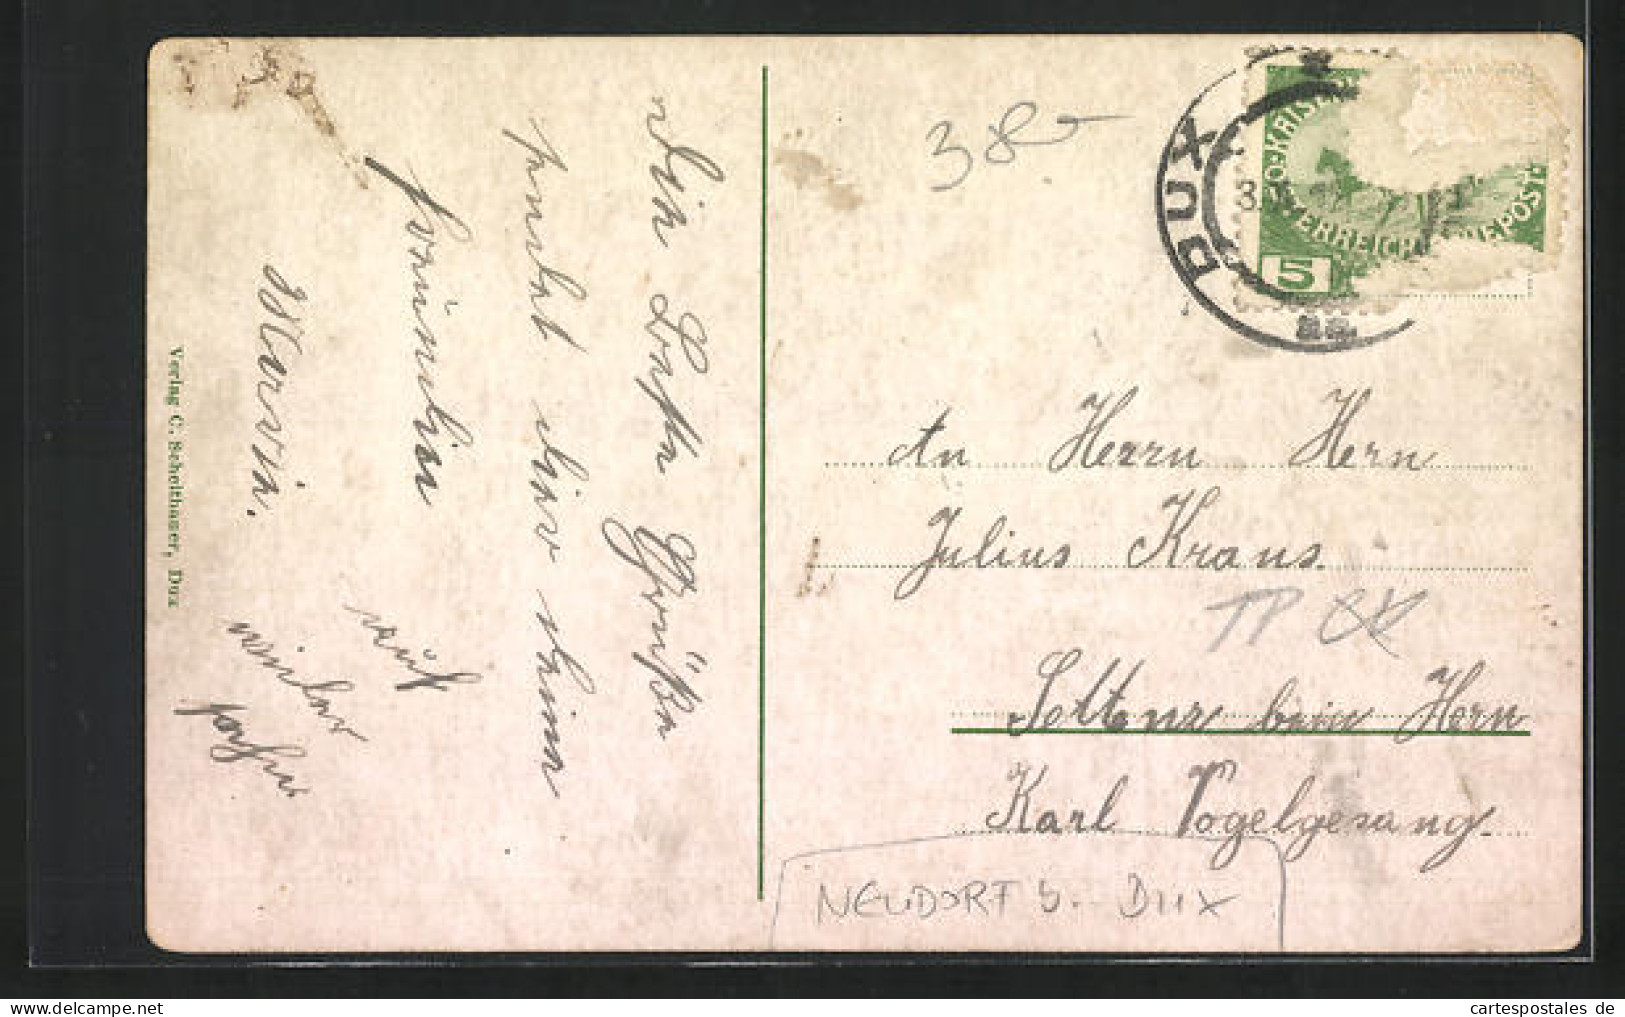 Die Besten Grüße
sendet dir deine
Freundin
Marie.
auf
wieder
sehn
Verlag C. Scheithauer, Dux
38.-
DUX
3.
5
An Herrn Hern
Julius Kraus.
Settenz beim Hern
Karl Vogelgesang.
NEUDORF b. DUX
cartespostales de